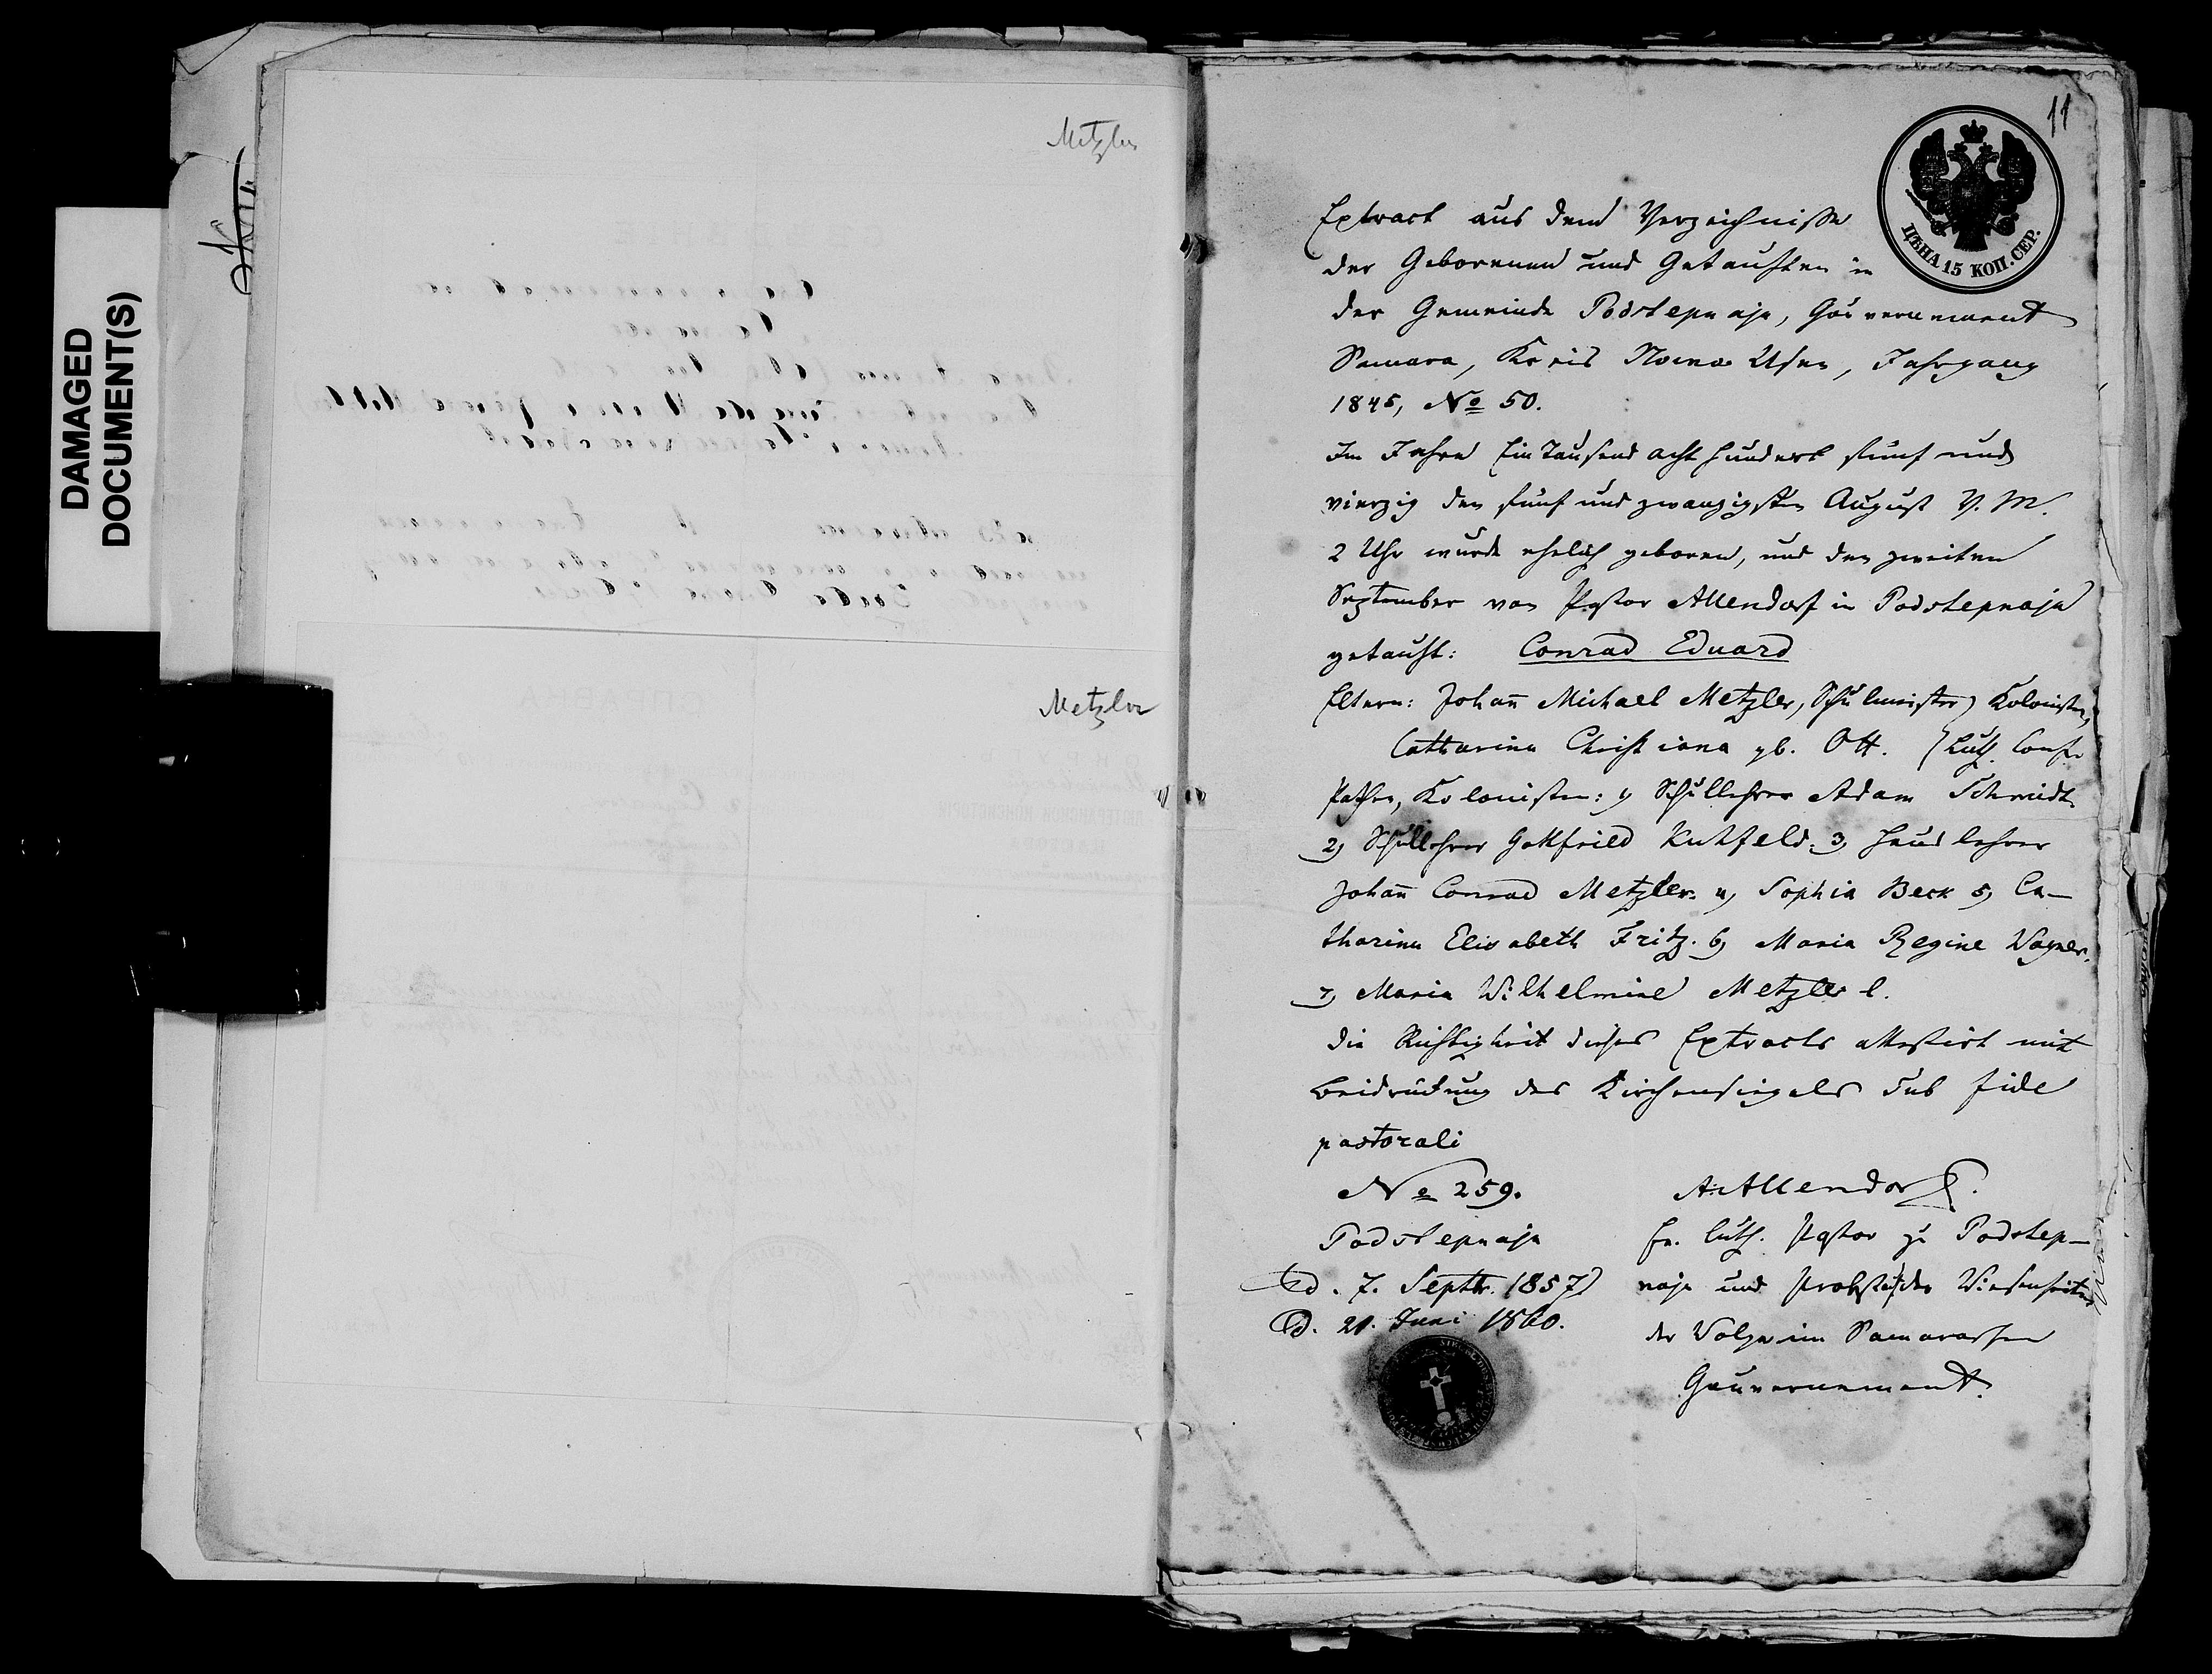 DAMAGED
DOCUMENT(S)
Metzler
Metzler
11
ЦѢНА 15 КОП. СЕР.
Extract aus dem Verzeichnisse
der Geborenen und Getauften in
der Gemeinde Podstepnaja, Gouvernement
Samara, Kreis Nowo Usen, Jahrgang
1845, № 50.
Im Jahre Ein Tausend acht hundert fünf und
vierzig den fünf und zwanzigsten August V. M.
2 Uhr wurde ehelich geboren, und den zweiten
September von Pastor Allendorf in Podstepnaja
getauft: Conrad Eduard
Eltern: Johan̄ Michael Metzler, Schulmeister) Kolonisten,
Catharina Christiana gb. Ott. (Luth. Conf.
Pathen, Kolonisten: 1) Schullehrer Adam Schmidt.
2) Schullehrer Gottfried Kuhfeld. 3) Hauslehrer
Johan̄ Conrad Metzler. 4) Sophia Beck 5) Ca-
tharina Elisabeth Fritz. 6) Maria Regine Wagner.
7) Maria Wilhelmine Metzler
Die Richtigkeit dieses Extracts attestirt mit
Beidrückung des Kirchensiegels sub fide
pastorali
№ 259.
Podstepnaja
d. 7. Septbr. 1857
d. 21. Juni 1860.
A. Allendorf.
Ev. luth. Pastor zu Podstep-
naja und Probst der Wiesenseite
der Wolga im Samaraschen
Gouvernement.